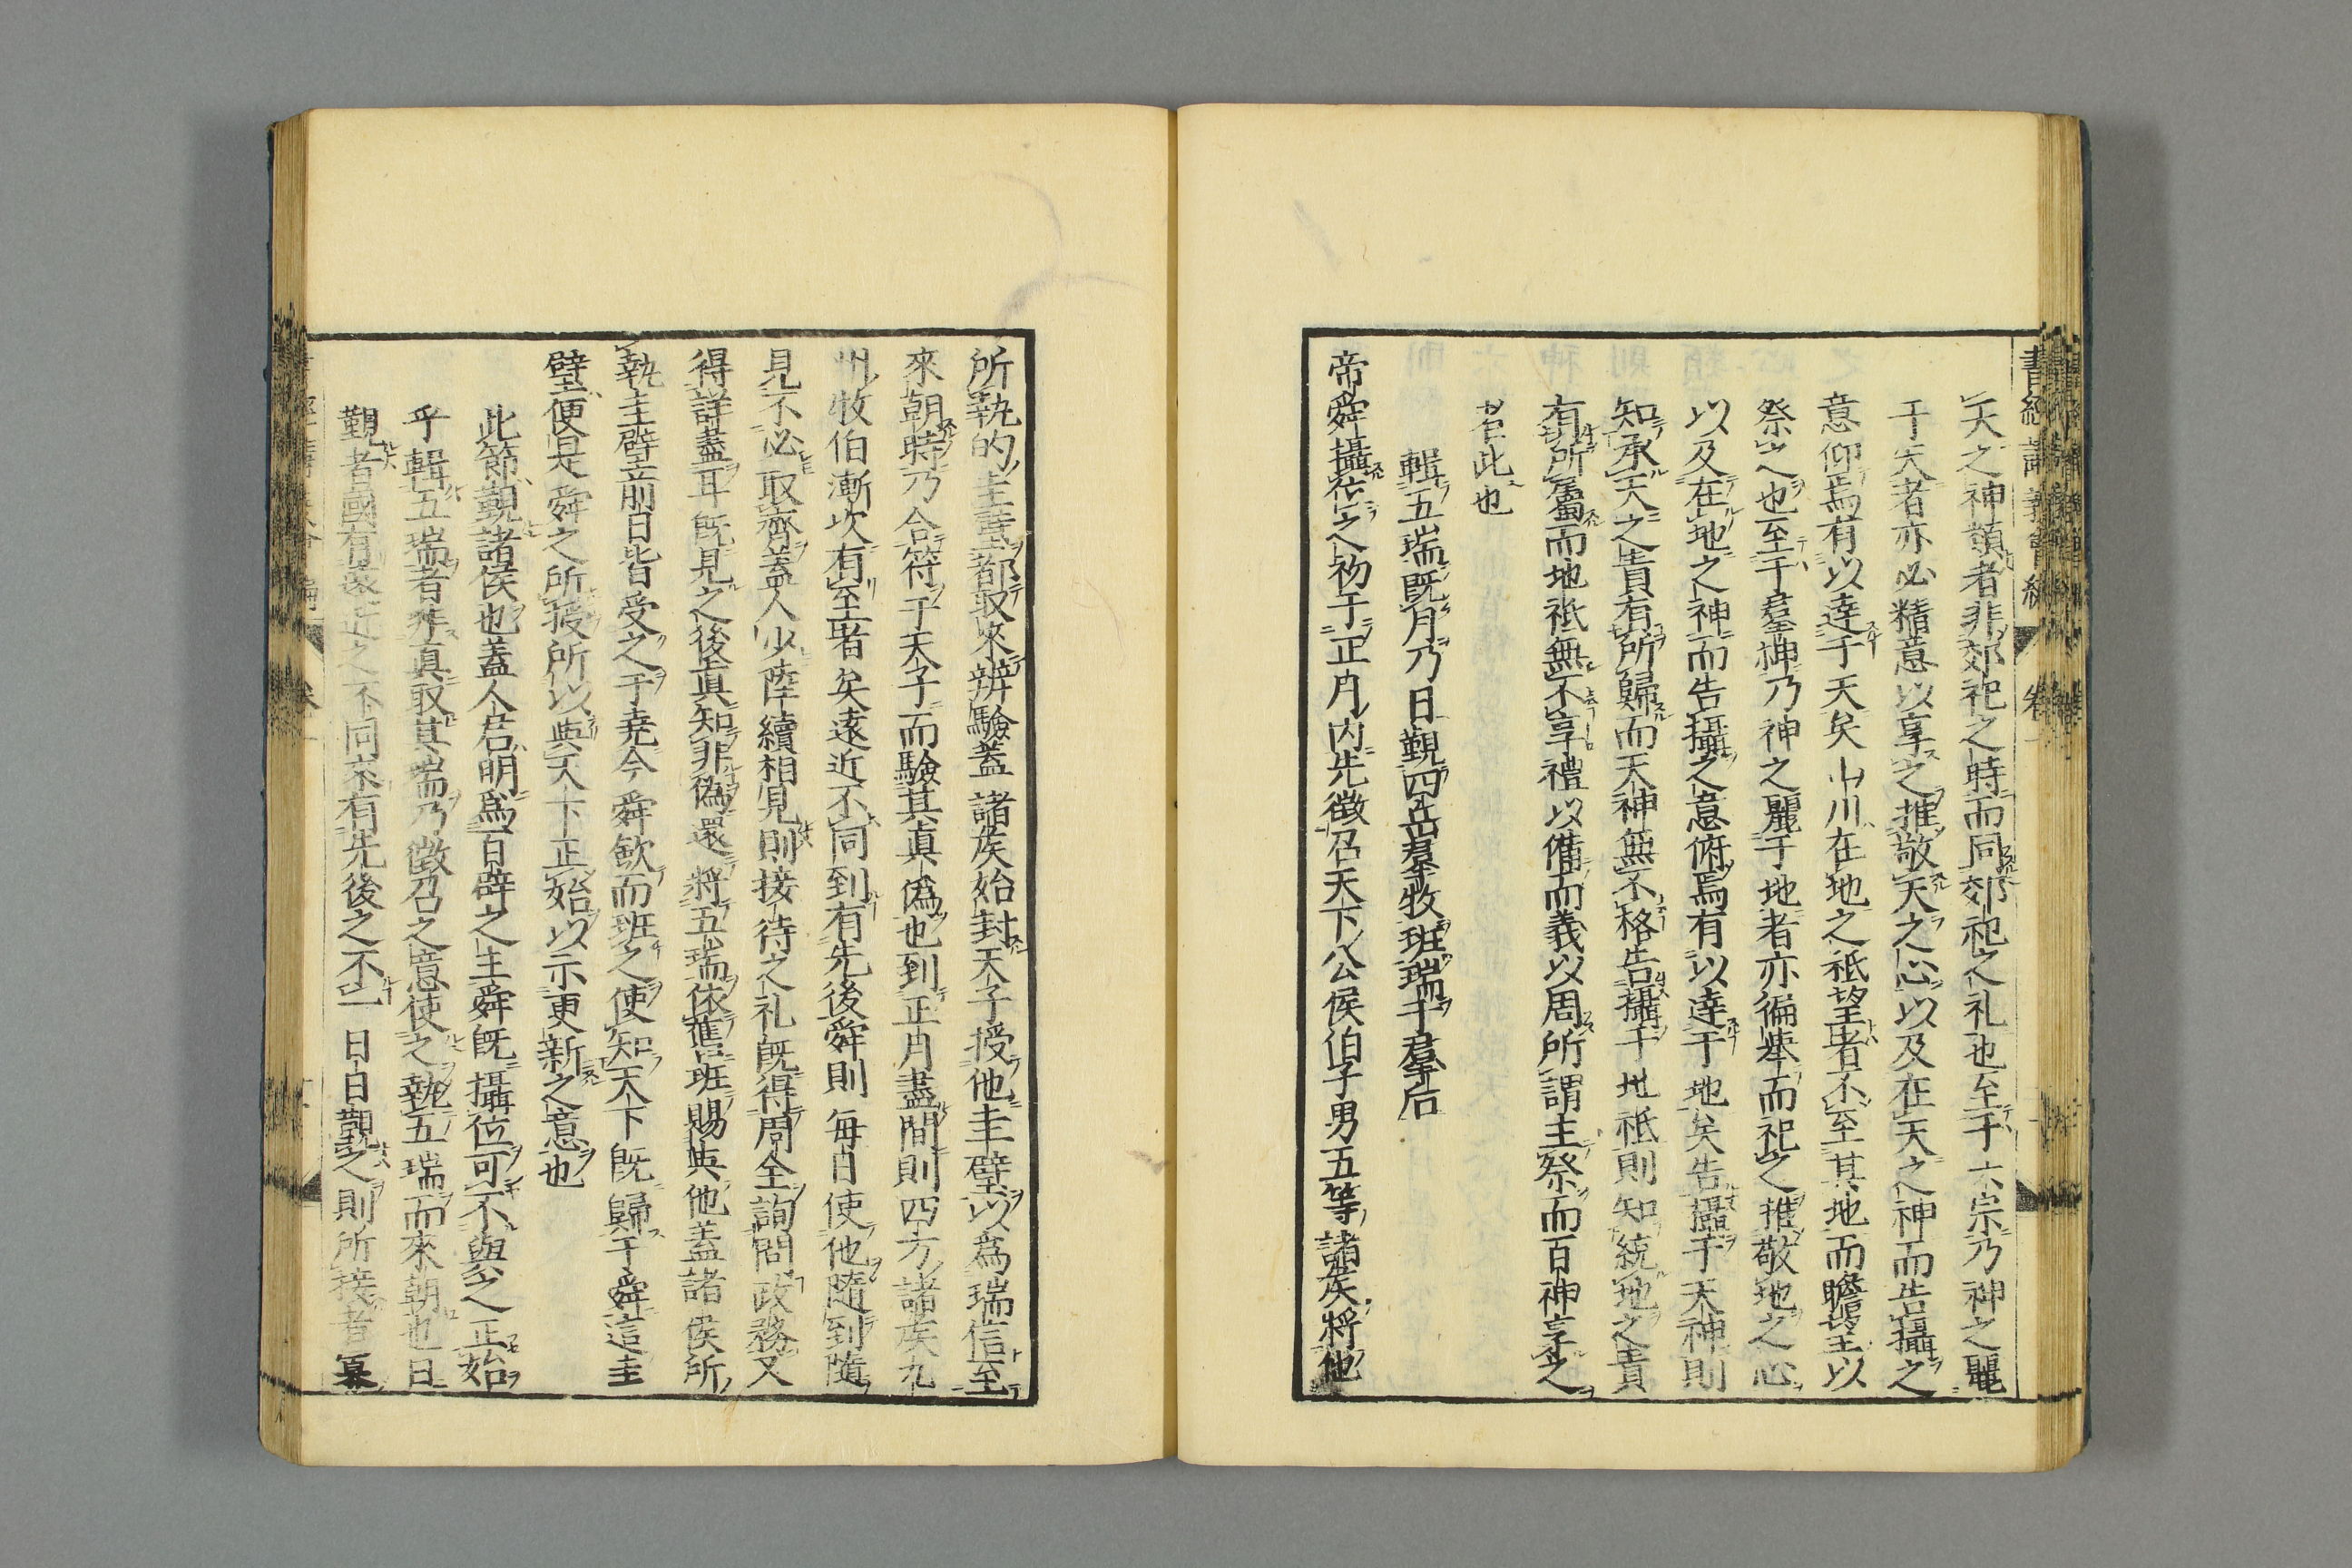 書經講義會編 卷一
天之神類者非郊祀之時而同郊祀之礼也至于六宗乃神之麗
于天者亦必精意以享之推敬天之心以及在天之神而告攝之
意仰焉有以達于天矣山川在地之祇望者不至其地而瞻望以
祭之也至于羣神乃神之麗于地者亦徧舉而祀之推敬地之心
以及在地之神而告攝之意俯焉有以達于地矣告攝于天神則
知承天之責有所歸而天神無不格告攝于地祇則知統地之責
有所屬而地祇無不享禮以備而義以周所謂主祭而百神享之
者此也
輯五瑞既月乃日覲四岳羣牧班瑞于羣后
帝舜攝位之初于正月内先徵召天下公侯伯子男五等諸矦將他
所執的圭璧都取來辨驗蓋諸矦始封天子授他圭璧以爲瑞信至
來朝時乃合符于天子而驗其真僞也到正月盡間則四方諸矦九
州牧伯漸次有至者矣遠近不同到有先後舜則每日使他隨到隨
見不必取齊蓋人少陸續相見則接待之礼既得周全詢問政務又
得詳盡耳既見之後真知非僞還將五瑞依舊班賜與他蓋諸侯所
執圭璧前日皆受之于堯今舜斂而班之使知天下既歸于舜這圭
璧便是舜之所授所以與天下正始以示更新之意也
此節覲諸侯也蓋人君明爲百辟之主舜既攝位可不與之正始
乎輯五瑞者非真取其瑞乃徵召之意使之執五瑞而來朝也日
覲者國有遠近之不同來有先後之不一日日覲之則所接者寡